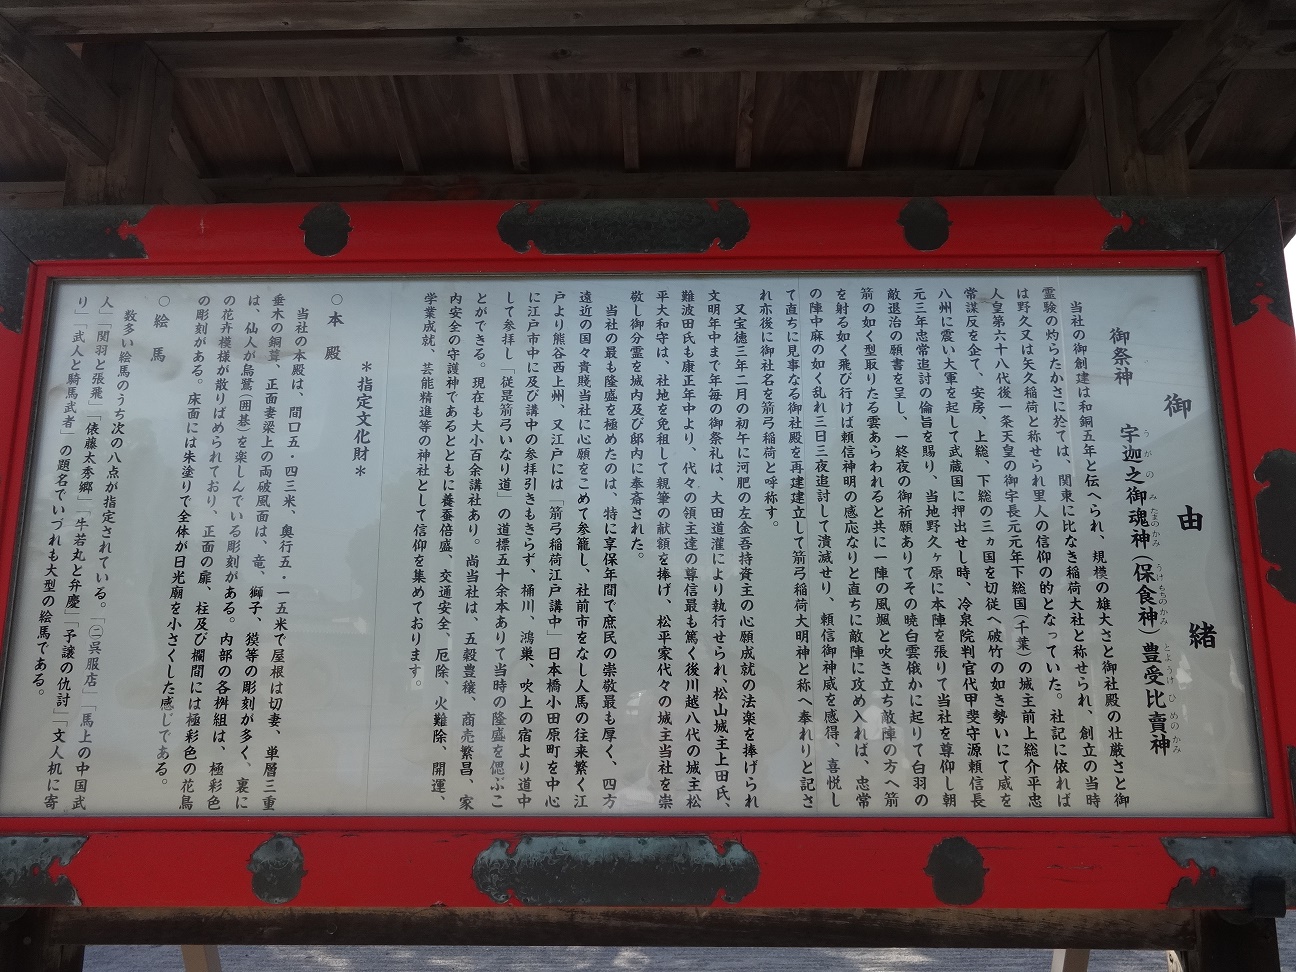 御由緒
御祭神　宇迦之御魂神（保食神）豊受比賣神
うがのみたまのかみ　うけもちのかみ　とようけひめのかみ
当社の御創建は和銅五年と伝へられ、規模の雄大さと御社殿の壮厳さと御
霊験の灼らたかさに於ては、関東に比なき稲荷大社と称せられ、創立の当時
は野久又は矢久稲荷と称せられ里人の信仰の的となっていた。社記に依れば
人皇第六十八代後一条天皇の御宇長元元年下総国（千葉）の城主前上総介平忠
常謀反を企て、安房、上総、下総の三ヵ国を切従へ破竹の如き勢いにて威を
八州に震い大軍を起して武蔵国に押出せし時、冷泉院判官代甲斐守源頼信長
元三年忠常追討の倫旨を賜り、当地野久ヶ原に本陣を張りて当社を尊仰し朝
敵退治の願書を呈し、一終夜の御祈願ありてその暁白雲俄かに起りて白羽の
箭の如く型取りたる雲あらわれると共に一陣の風颯と吹き立ち敵陣の方へ箭
を射る如く飛び行けば頼信神明の感応なりと直ちに敵陣に攻め入れば、忠常
の陣中麻の如く乱れ三日三夜追討して潰滅せり、頼信御神威を感得、喜悦し
て直ちに見事なる御社殿を再建建立して箭弓稲荷大明神と称へ奉れりと記さ
れ亦後に御社名を箭弓稲荷と呼称す。
又宝徳三年二月の初午に河肥の左金吾持資主の心願成就の法楽を捧げられ
文明年中まで年毎の御祭礼は、大田道灌により執行せられ、松山城主上田氏、
難波田氏も康正年中より、代々の領主達の尊信最も篤く後川越八代の城主松
平大和守は、社地を免租して親筆の献額を捧げ、松平家代々の城主当社を崇
敬し御分霊を城内及び邸内に奉斎された。
当社の最も隆盛を極めたのは、特に享保年間で庶民の崇敬最も厚く、四方
遠近の国々貴賤当社に心願をこめて参籠し、社前市をなし人馬の往来繁く江
戸より熊谷西上州、又江戸には「箭弓稲荷江戸講中」日本橋小田原町を中心
に江戸市中に及び講中の参拝引きもきらず、桶川、鴻巣、吹上の宿より道中
して参拝し「従是箭弓いなり道」の道標五十余本ありて当時の隆盛を偲ぶこ
とができる。現在も大小百余講社あり。尚当社は、五穀豊穣、商売繁昌、家
内安全の守護神であるとともに養蚕倍盛、交通安全、厄除、火難除、開運、
学業成就、芸能精進等の神社として信仰を集めております。
＊指定文化財＊
○本殿
当社の本殿は、間口五・四三米、奥行五・一五米で屋根は切妻、単層三重
垂木の銅葺、正面妻梁上の両破風面は、竜、獅子、獏等の彫刻が多く、裏に
は、仙人が烏鷺（囲碁）を楽しんでいる彫刻がある。内部の各桝組は、極彩色
の花卉模様が散りばめられており、正面の扉、柱及び欄間には極彩色の花鳥
の彫刻がある。床面には朱塗りで全体が日光廟を小さくした感じである。
○絵馬
数多い絵馬のうち次の八点が指定されている。「㊁呉服店」「馬上の中国武
人」「関羽と張飛」「俵藤太秀郷」「牛若丸と弁慶」「予譲の仇討」「文人机に寄
り」「武人と騎馬武者」の題名でいづれも大型の絵馬である。